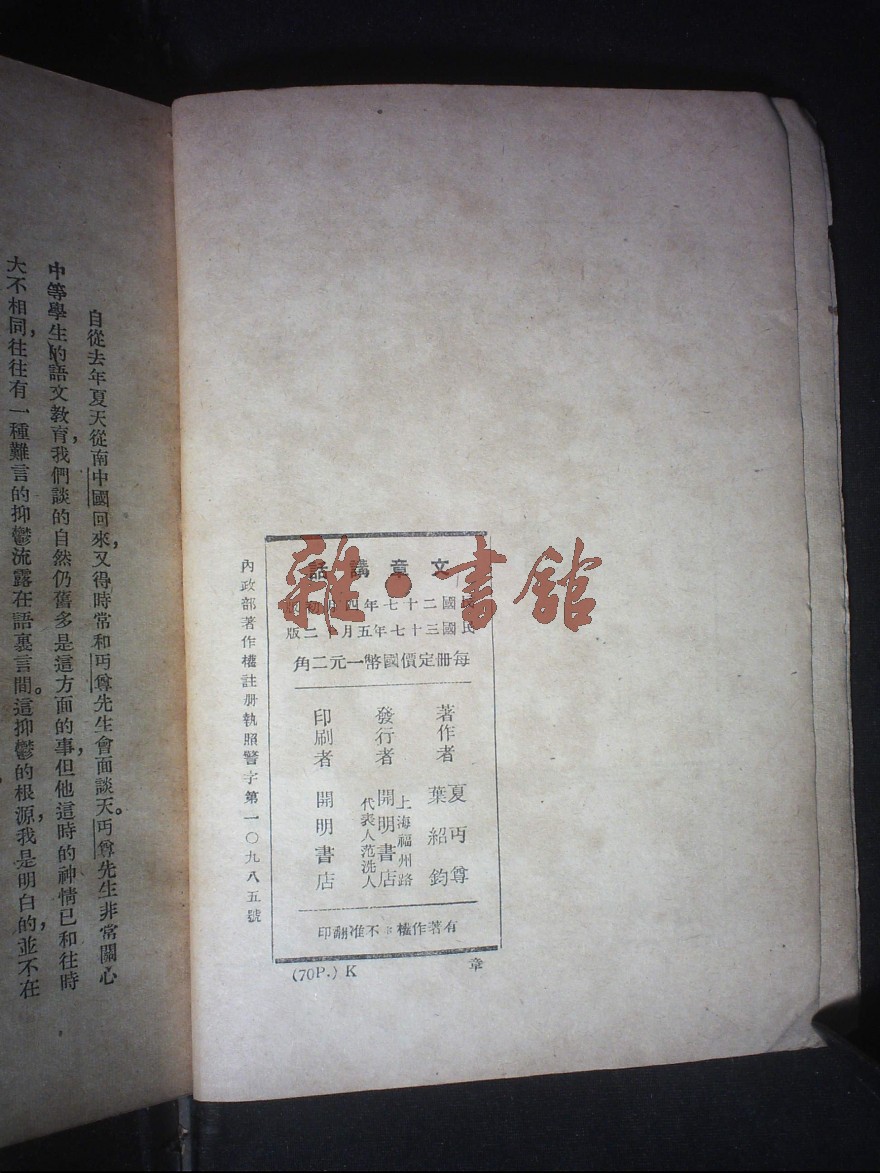 自從去年夏天從南中國回來，又得時常和丏尊先生會面談天。丏尊先生非常關心
中等學生的語文教育，我們談的自然仍舊多是這方面的事，但他這時的神情已和往時
大不相同，往往有一種難言的抑鬱流露在語裏言間。這抑鬱的根源，我是明白的，並不在
文章講話
民國二十七年四月初版
民國三十七年五月二版
每冊定價國幣一元二角
著作者 夏丏尊
葉紹鈞
發行者 上海福州路
開明書店
代表人范洗人
印刷者 開明書店
有著作權不准翻印
內政部著作權註册執照警字第一〇九八五號
(70P.) K
章
雜·書館